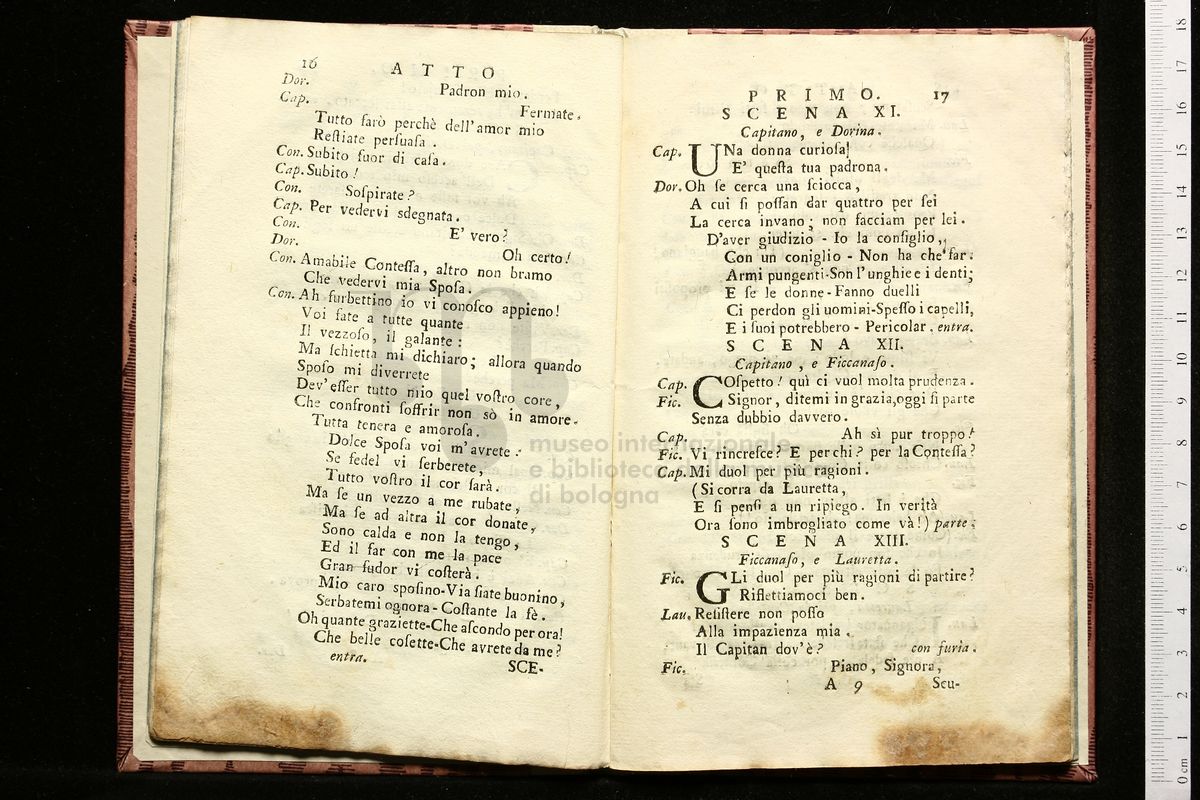 16
A T T O
Dor. Padron mio.
Cap. Fermate.
Tutto farò perchè dell'amor mio
Reſtiate perſuaſa.
Con. Subito fuor di caſa.
Cap. Subito!
Con. Soſpirate?
Cap. Per vedervi sdegnata.
Con. E' vero?
Dor. Oh certo!
Con. Amabile Conteſſa, altro non bramo
Che vedervi mia Spoſa.
Con. Ah furbettino io vi conoſco appieno!
Voi fate a tutte quante
Il vezzoſo, il galante:
Ma ſchietta mi dichiaro; allora quando
Spoſo mi diverrete
Dev'eſſer tutto mio quel voſtro core,
Che confronti ſoffrir non sò in amore.
Tutta tenera e amoroſa.
Dolce Spoſa voi m'avrete:
Se fedel vi ſerberete,
Tutto voſtro il cor ſarà.
Ma ſe un vezzo a me rubate,
Ma ſe ad altra il cor donate,
Sono calda e non la tengo,
Ed il far con me la pace
Gran ſudor vi coſterà.
Mio caro spoſino-Via ſiate buonino,
Serbatemi ognora-Coſtante la fè.
Oh quante graziette-Che aſcondo per ora!
Che belle coſette-Che avrete da me?
entra.
SCE-
P R I M O. 17
S C E N A XI.
Capitano, e Dorina.
Cap. UNa donna curioſa!
E' queſta tua padrona.
Dor. Oh ſe cerca una ſciocca,
A cui ſi poſſan dar quattro per ſei
La cerca invano; non facciam per lei.
D'aver giudizio - Io la conſiglio,
Con un coniglio - Non ha che far.
Armi pungenti-Son l'unghie e i denti;
E ſe le donne-Fanno duelli
Ci perdon gli uomini-Speſſo i capelli,
E i ſuoi potrebbero - Pericolar. entra.
S C E N A XII.
Capitano, e Ficcanaſo.
Cap. COſpetto! quì ci vuol molta prudenza.
Fic. Signor, ditemi in grazia, oggi ſi parte
Senza dubbio davvero.
Cap. Ah sì pur troppo!
Fic. Vi rincreſce? E perchi? per la Conteſſa?
Cap. Mi duol per più ragioni.
(Si corra da Lauretta,
E ſi penſi a un ripiego. In verità
Ora ſono imbrogliato come và!) parte.
S C E N A XIII.
Ficcanaſo, e Lauretta.
Fic. GLi duol per più ragioni di partire?
Riflettiamoci ben.
Lau. Reſiſtere non poſſo
Alla impazienza mia.
Il Capitan dov'è? con furia.
Fic. Piano, Signora,
A 9 Scu-
museo internazionale
e biblioteca della musica
di bologna
0 cm 1 2 3 4 5 6 7 8 9 10 11 12 13 14 15 16 17 18